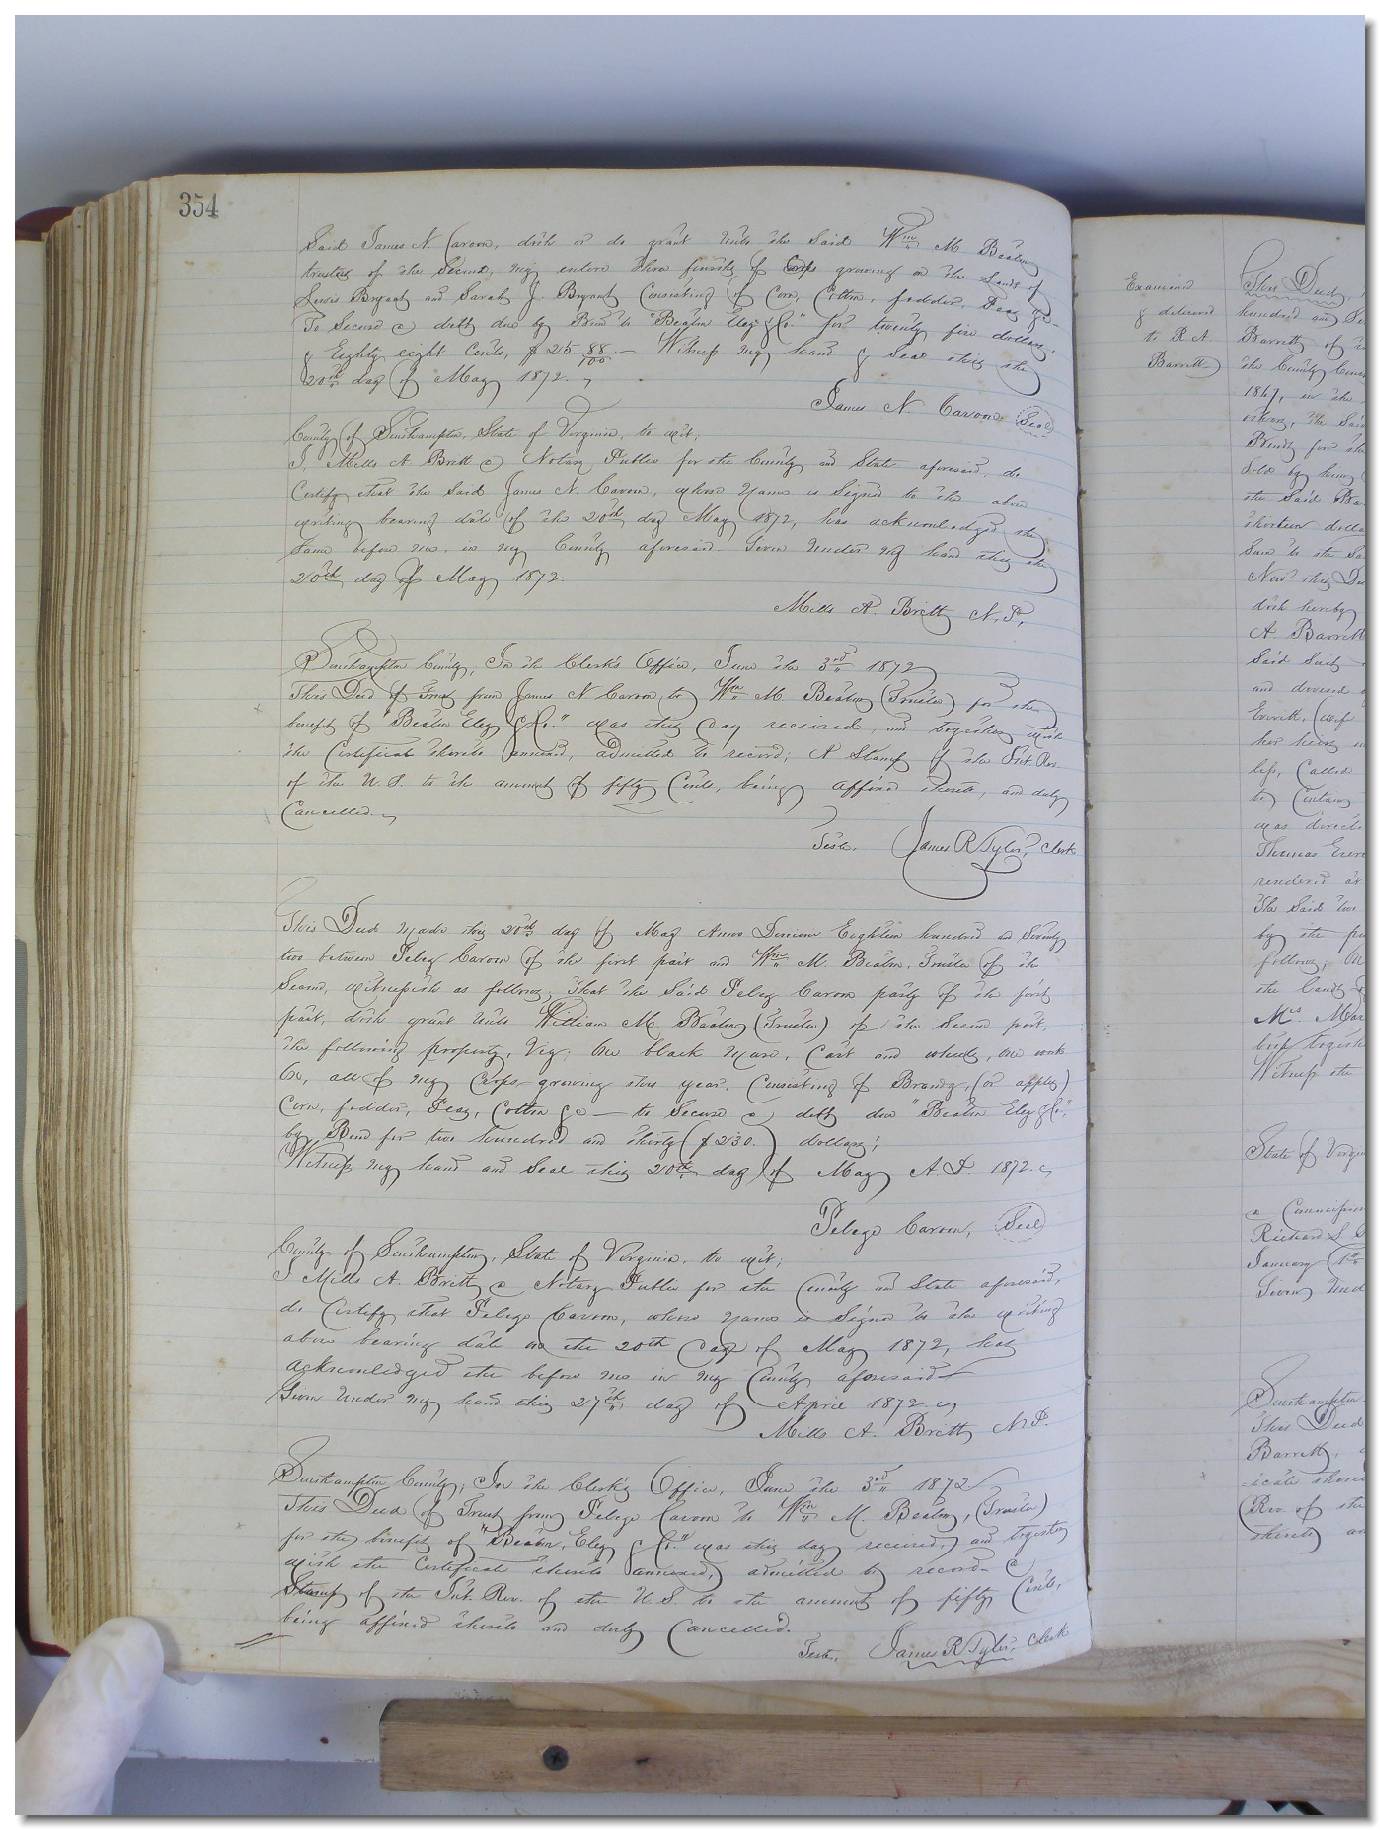 354
Said James N. Carson, doth or do grant unto the Said Wm M Beaton
trustee of the Second, my entire three fourths of Crops growing on the Lands of
Lewis Bryant and Sarah J. Bryant Consisting of Corn, Cotton, fodder, Peas &c
To Secure a debt due by Bond to "Beaton Eley & Co." for twenty five dollars
& Eighty eight Cents, $25 88/100 — Witness my hand & Seal this the
20th day of May 1872.
James N Carson Seal
County of Southampton, State of Virginia, to wit;
I, Mills A. Britt a Notary Public for the County and State aforesaid, do
Certify that the Said James N. Carson, whose Name is Signed to the above
writing bearing date of the 20th day May 1872, has acknowledged the
Same before me, in my County aforesaid. Given Under my hand this the
20th day of May 1872.
Mills A. Britt, N. P.
Southampton County, In the Clerk's Office, June the 3rd 1872
This Deed of Trust from James N Carson to Wm M Beaton (Trustee) for the
benefit of "Beaton Eley & Co." was this day received, and together with
the Certificate thereto annexed, admitted to record; A Stamp of the Int. Rev.
of the U. S. to the amount of fifty Cents, being affixed thereto, and duly
Cancelled.
Teste. James R Tyler, Clerk
This Deed made this 20th day of May Anno Domini Eighteen hundred and Seventy
two between Peleg Carson of the first part and Wm M. Beaton, Trustee of the
Second, witnesseth as follows; That the Said Peleg Carson party of the first
part, doth grant Unto William M. Beaton (Trustee) of the Second part,
the following property, Viz; One black Mare, Cart and wheels, one work
Ox, all of my Crops growing this year, Consisting of Brandy, (or apples)
Corn, fodder, Peas, Cotton &c — to Secure a debt due "Beaton Eley & Co.",
by Bond for two hundred and thirty ($230.) dollars;
Witness my hand and Seal this 20th day of May A. D. 1872.
Pelego Carson, Seal
County of Southampton, State of Virginia, to wit;
I Mills A. Britt a Notary Public for the County and State aforesaid,
do Certify that Pelego Carson, whose Name is Signed to the writing
above bearing date on the 20th day of May 1872, has
acknowledged the before me in my County aforesaid
Given Under my hand this 27th day of April 1872.
Mills A. Britt, N. P.
Southampton County; In the Clerk's Office, June the 3rd 1872
This Deed of Trust from Pelego Carson to Wm M. Beaton, (Trustee)
for the benefit of "Beaton, Eley & Co." was this day received, and together
with the Certificate thereto annexed, admitted to record. A
Stamp of the Int. Rev. of the U. S. to the amount of fifty Cents,
being affixed thereto and duly Cancelled.
Teste, James R Tyler, Clerk
Examined
& delivered
to R. A.
Barrett
This Deed,
hundred and
Barrett, of
the County
1867, in the
the Said
Bond for
Sold by him
the said
thirteen
Sum to the
Now this
doth hereby
A Barrett
Said
and divided
Everitt, (wife
her heirs
less, Called
by
was
Thomas
rendered at
The Said two
by the
follows;
the lands
Witness the
State of
a
Richard S.
January 1st
Given Und
Southampton
This Deed
Barrett,
-icate
(Rev. of the
thereto